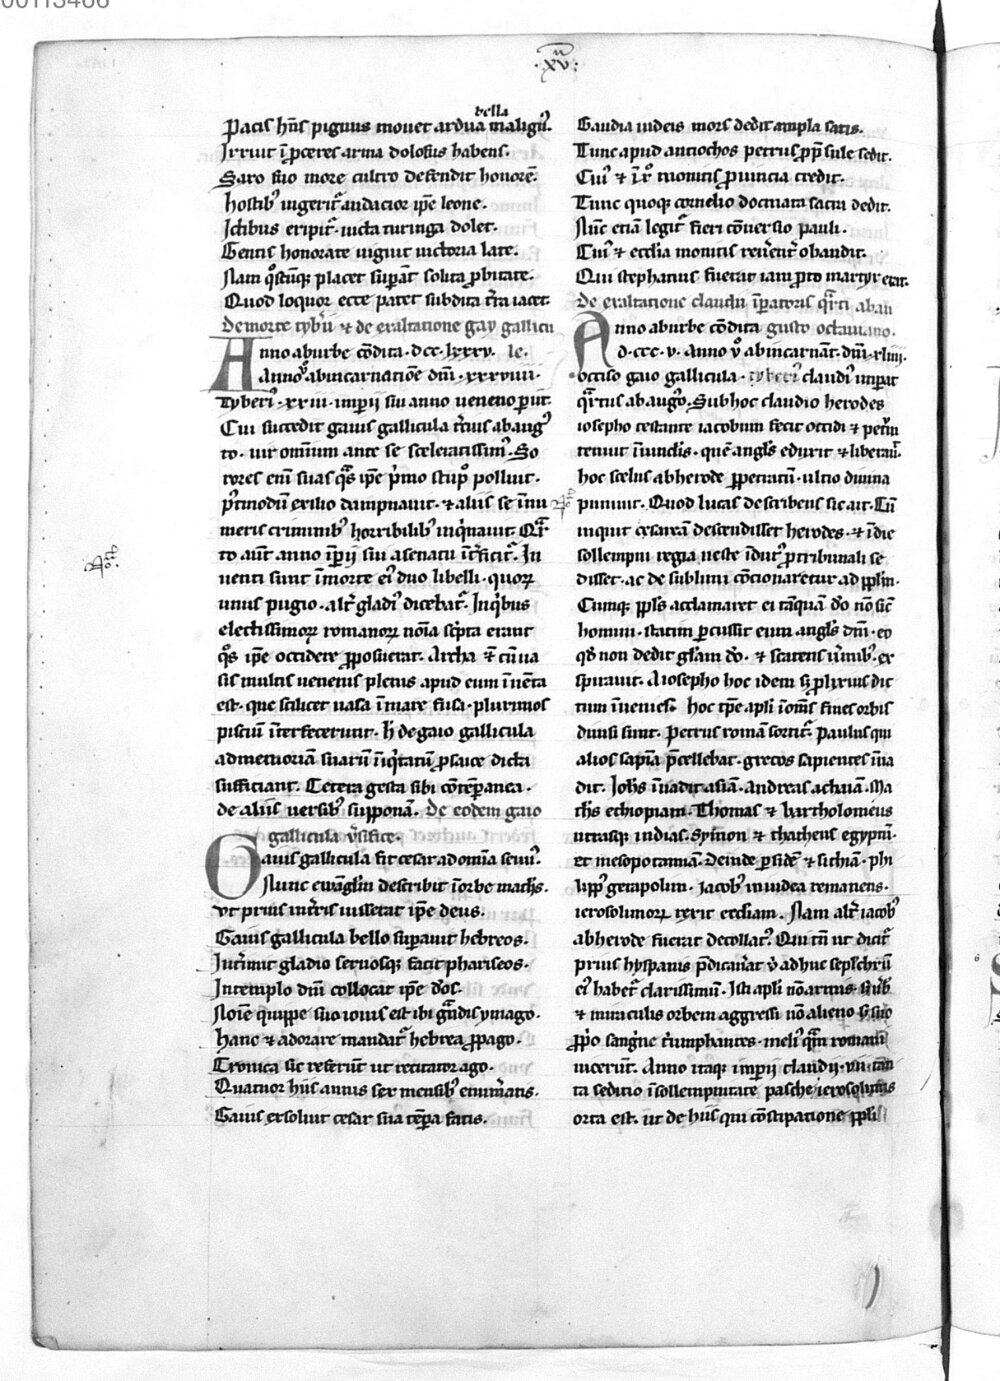 00113466
·xv:
bella
Pacis hn̄s pignus mouet ardua malignꝰ.
Irruit ī ꝓceres arma dolosus habens.
Saxo suo more cultro defendit honorē.
hostibꝰ ingerit᷑ audacior ip̄e leone.
Ictibus eripit᷑. uicta turinga dolet.
Gentis honorate uiguit uictoria late.
Nam placet suꝑat solita ꝓbitate.
Quod loquor ecce patet subdita t̄ra iacet.
De morte tyb̄ii ⁊ de exaltatione gay gallicu
Anno ab urbe cōdita. dcc. lxxxv. le.
Anno ꝟ ab incarnatiōe dn̄i. xxxviiii.
Tyberiꝰ. xxiii. imꝑii sui anno ueneno ꝑiit.
Cui succedit gauis gallicula t̄cius ab augꝰ
to. uir omnium ante se sceleratissimꝰ. So
rores eni᷑ suas q̄s ip̄e p̄mo stupꝰ polluit.
p̄tmodū exilio dampnauit. ⁊ aliis se innu
meris criminibꝰ horribilibꝰ inq̄nauit. Qr̄
to aut̄ anno īꝑii sui a senatu īt̄ficit᷑. In
uenti sunt ī morte eiꝰ duo libelli. quoꝝ
unus pugio. alt᷑ gladiꝰ dicebat᷑. In q̄bus
electissimoꝝ romanoꝝ noīa sc̄pta erant
q̄s ip̄e occidere ꝓposuerat. Archa ⁊ cū ua
sis multis uenenis plenus apud eum īuēta
est. que scilicet uasa ī mare fusa. plurimos
pisciū īterfecerunt. h̄ de gaio gallicula
ad memoriā suarū īiq̄tatū ꝓsaice dicta
sufficiant. Cetera gesta sibi cōtēꝑanea.
de aliis uersibꝰ supponā. De eodem gaio
gallicula ꝟsifice.
Gauis gallicula fit cesar ad omīa seuꝰ.
Nunc ewāgliū describit ī orbe mathꝰs.
Vt prius int̄ris iusserat ip̄e deus.
Gauis gallicula bello suꝑauit hebreos.
Int̄imit gladio seruosqꝫ facit phariseos.
In templo dn̄i collocat ip̄e d̄os.
Noīe quippe suo iouis est ibi grādis ymago.
hanc ⁊ adorare mandat᷑ hebrea ꝓpago.
Cronica sic referūt ut recitator ago.
Quatuor hiis annis sex mensibꝰ enum̄atis.
Gauis exsoluit cesar sua tēꝑa fatis.
Gaudia iudeis mors dedit ampla satis.
Tunc apud antiochos petrus p̄p̄sule sedit.
Cuiꝰ ⁊ monitis ꝓuincia credit.
Tunc quoqꝫ cornelio docmata sacra dedit.
Nūc etiā legit᷑ fieri cōuersio pauli.
Cuiꝰ ⁊ ecclīa monitis obandit.
Qui stephanus fuerat iam ꝓto martyr erat.
De exaltatione claudii īꝑatoris q̄rti ab au
Anno ab urbe cōdita gusto octauiano.
d. ccc. v. anno ꝟ ab incarnāt. dn̄i. xliiii.
occiso gaio gallicula. tyberiꝰ claudiꝰ imꝑat
q̄rtus ab augꝰo. Sub hoc claudio herodes
iosepho testante iacobum fecit occidi ⁊ pet᷑m
tenuit ī uinclis. quē angl̄s eduxit ⁊ liberauit.
hoc scelus ab herode ꝑpetratū. ultio diuina
puniuit. Quod lucas describens sic ait. Cū
inquit cesareā descendisset herodes. ⁊ ī die
sollempni regia ueste īdutꝰ ꝓ tribunali se
disset. ac de sublimi cōcionaretur ad ppl̄m.
Cumqꝫ ppl̄s acclamaret ei tāquā d̄o nō sic̄
homini. statim ꝑcussit eum angl̄s dn̄i. eo
qꝺ non dedit gl̄am d̄o. ⁊ scatens ꝟmibꝰ. ex
spirauit. A iosepho hoc idem ⁊ ꝓlixius dic
tum īuenies. hoc tp̄e apl̄i ī om̄s fines orbis
diuisi sunt. Petrus romā sortit᷑. Paulus qui
alios sapīa p̄cellebat. grecos sapientes īua
dit. Ioh̄s īuadit asiā. andreas achaiā. Ma
th̄s ethiopiam. Thomas ⁊ bartholomeus
utrasqꝫ indias. Symon ⁊ thatheus egyptū.
et mesopotamiā. Deinde ꝑsidē ⁊ sithiā. phi
lippꝰ gerapolim. Iacobꝰ in iudea remanens.
ierosolimoꝝ rexit eccliam. Nam alt᷑ iacobꝰ
ab herode fuerat decollatꝰ. Qui tn̄ ut dicit᷑
prius hyspanis p̄dicauerat ꝟ adhuc sepulchrū
eiꝰ habet᷑ clarissimū. Isti apl̄i nō armis
⁊ miraculis orbem aggressi nō alieno sꝫ suo
ꝓp̄o sangīne t̄iumphantes. meliꝰ qͣm romani
uicerūt. Anno itaqꝫ imꝑii claudii. vii. tan
ta seditio ī sollempnitate pasche ierosolimis
orta est. ut de hiis qui cōstipatione ppl̄i